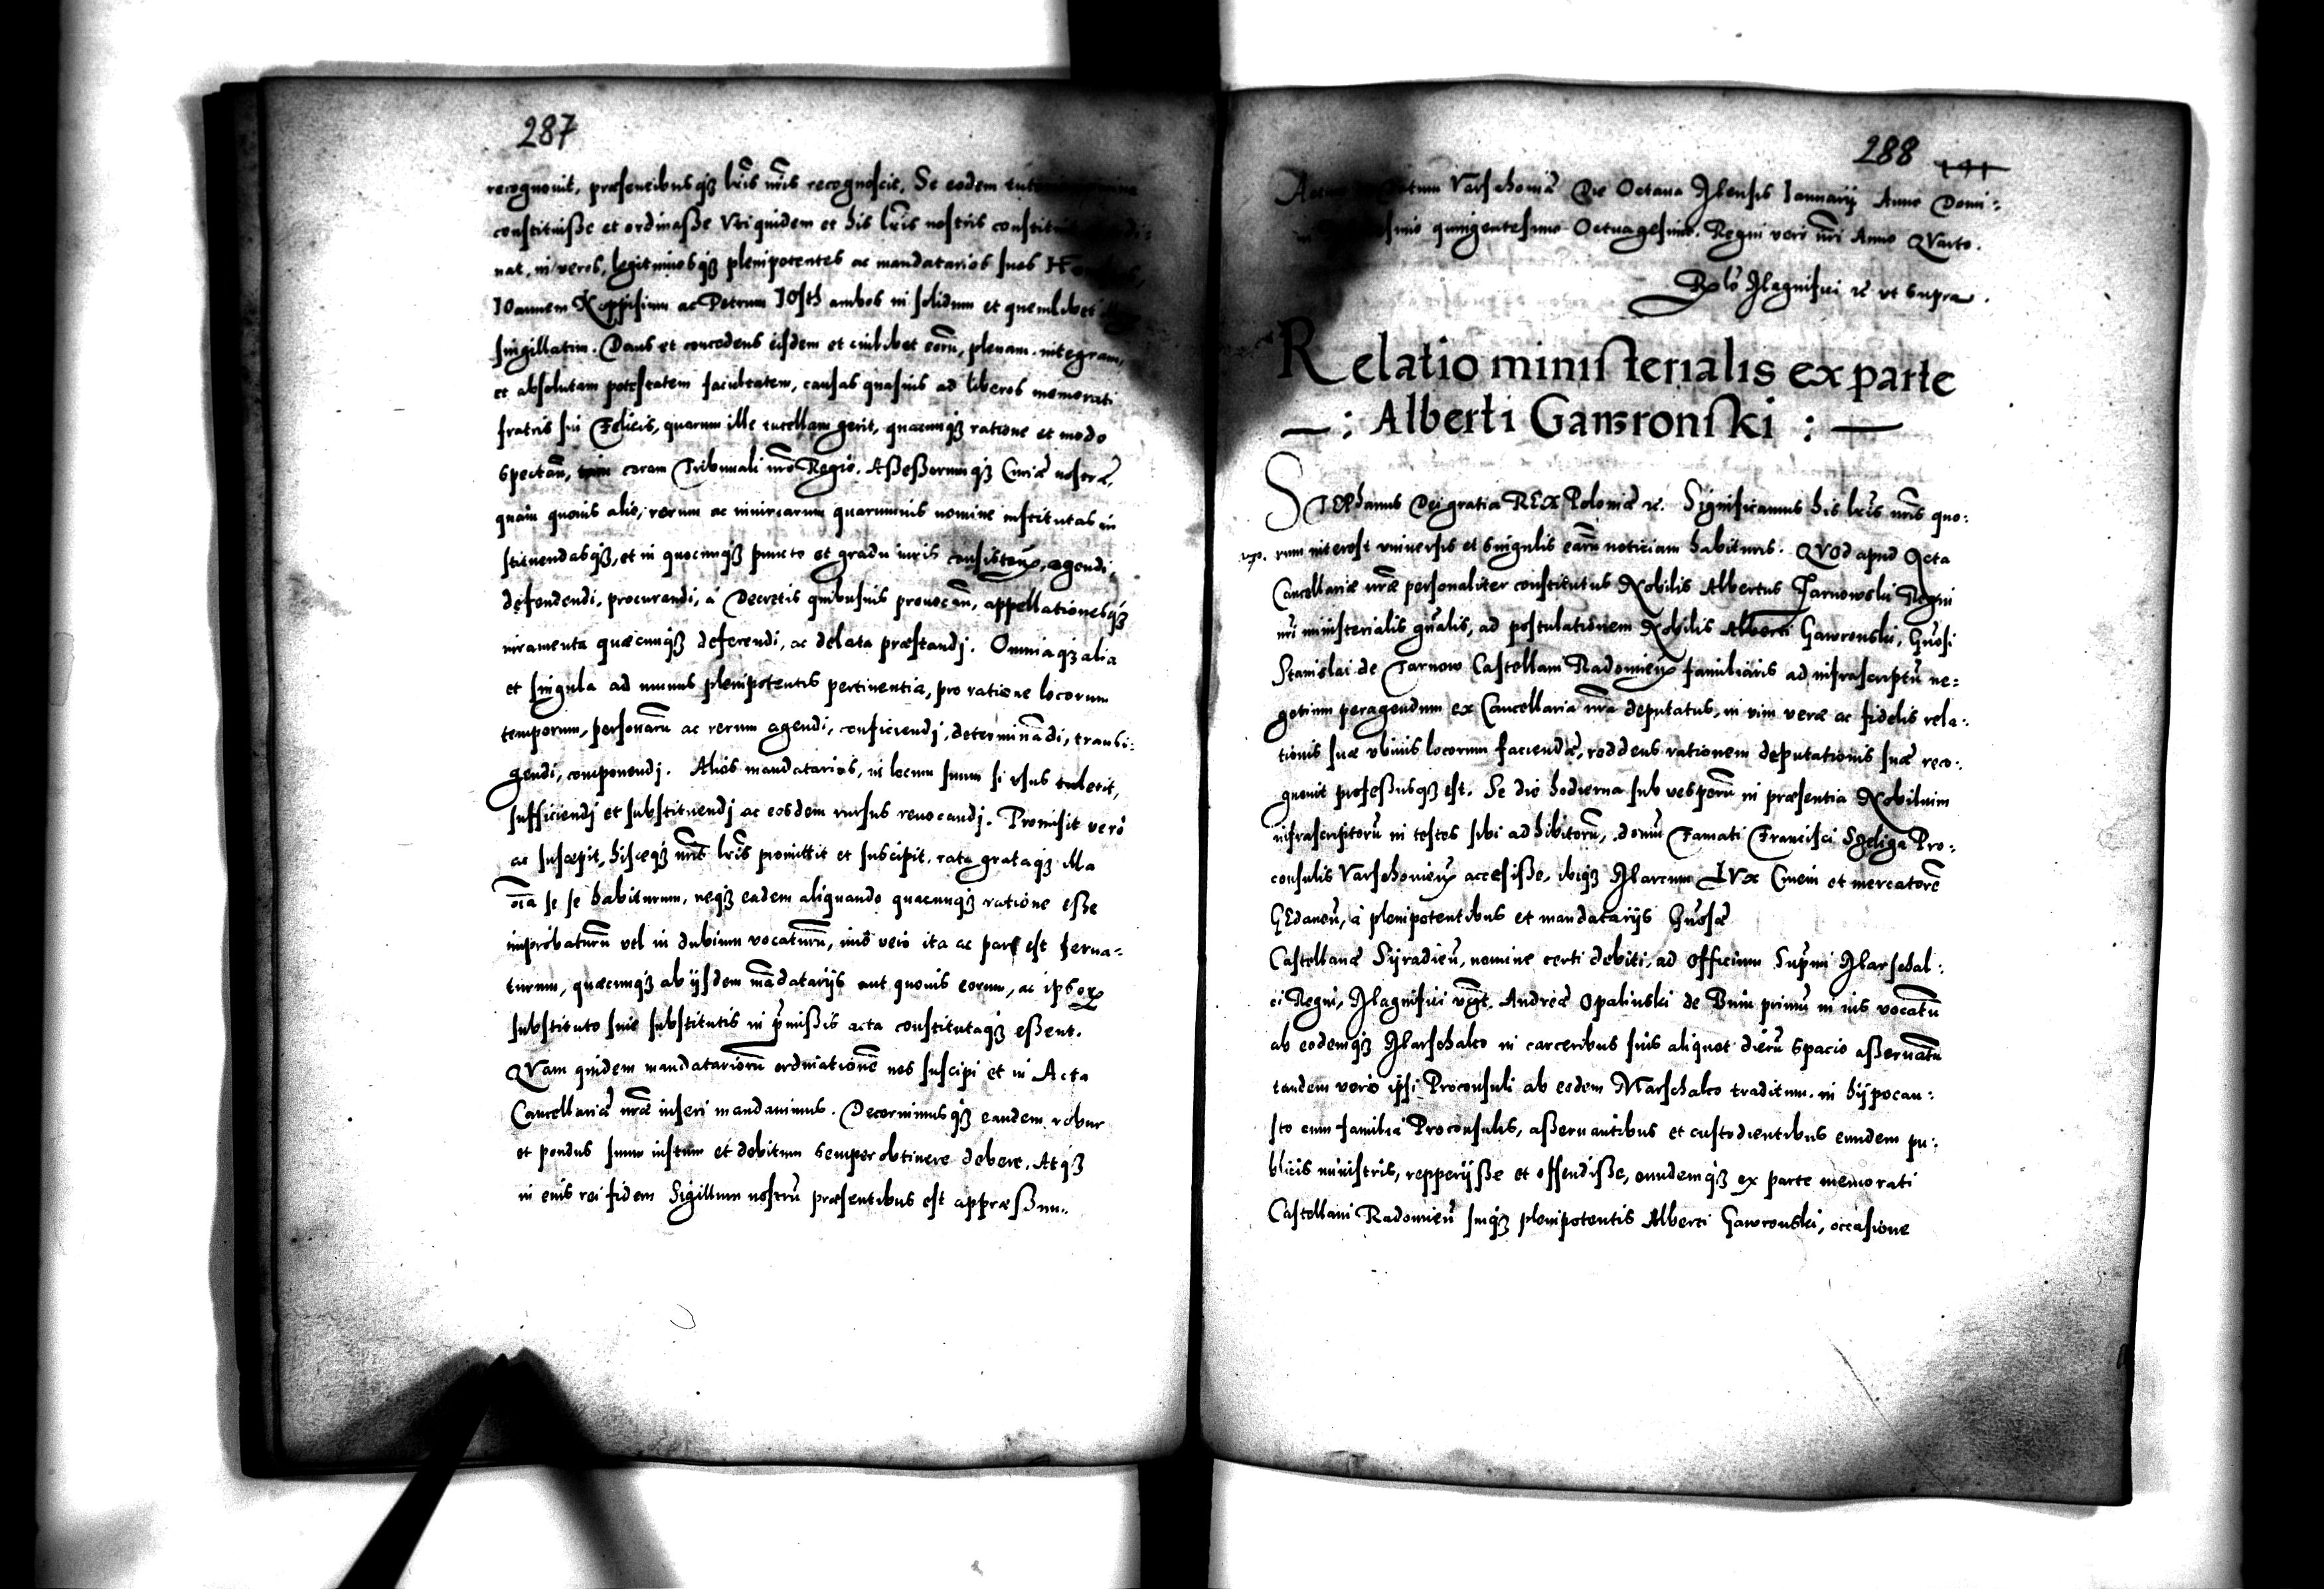 287
recognouit, præsentibusq3 lris nris recognoscit. Se eodem
constituisse et ordinasse Vti quidem et his lris nostris
nat, in veros, legitimosq3 plenipotentes ac mandatarios suos
IOannem ac Petrum IOsth ambos in solidum et quemlibet
singillatim. Dans et concedens eisdem et cuilibet eorũ, plenam, integram,
et absolutam potestatem facultatem, causas quasuis ad liberos memorati
fratris sui Felicis, quorum ille tutellam gerit, quacunq3 ratione et modo
spectañ, coram Tribunali nro Regio, Assessorumq3 Curiæ nostræ,
quam quouis alio, rerum ac iniuriarum quarumuis nomine institutas in
stituendasq3, et in quocunq3 puncto et gradu iuris consisteñ, agendi,
defendendi, procurandi, a Decretis quibusuis prouocañ, appellationesq3
iuramenta quæcunq3 deferendi, ac delata præstandj. Omniaq3 alia
et singula ad munus plenipotentis pertinentia, pro ratione locorum
temporum, personarũ ac rerum agendi, conficiendj, determinãdi, transi:
gendi, componendj. Alios mandatarios, in locum suum si vsus tulerit,
sufficiendj et substituendj ac eosdem rursus reuocandj. Promisit verò
ac suscepit, hisceq3 nris lris promittit et suscipit, rata grataq3 illa
oia se se habiturum, neq3 eadem aliquando quacunq3 ratione esse
improbaturũ vel in dubium vocaturũ, imò verò ita ac par est serua-
turum, quæcunq3 ab ijsdem mãdatarijs aut quouis eorum, ac ipsorum
substituto siue substitutis in pmissis acta constitutaq3 essent.
QVam quidem mandatariorũ ordinationẽ nos suscipi et in Acta
Cancellariæ nræ inseri mandauimus. Decernimusq3 eandem robur
et pondus suum iustum et debitum semper obtinere debere. Atq3
in eius rei fidem Sigillum nostrũ præsentibus est appræssum.
288
Varschouiæ Die Octaua Mensis Ianuarij Anno Domi:
quingentesimo Octuagesimo. Regni verò nri Anno QVarto.
Rlo Magnifici &c vt supra.
Relatio ministerialis ex parte
— : Alberti Gawronski : —
STEPhanus Dei gratia REX Poloniæ &c. Significamus his lris nris quo:
rum interest vniuersis et singulis earũ noticiam habituris. QVOd apud Acta
Cancellariæ nræ personaliter constitutus Nobilis Albertus Tarnowski Regni
nri ministerialis gnalis, ad postulationem Nobilis Alberti Gawronski, Gnosi
Stanislai de Tarnow Castellani Radomieñ familiaris ad infrascriptũ ne=
gotium peragendum ex Cancellaria nra deputatus, in vim veræ ac fidelis rela:
tionis suæ vbiuis locorum faciendæ, reddens rationem deputationis suæ reco:
gnouit professusq3 est. Se die hodierna sub vesperũ in præsentia Nobilium
infrascriptorũ in testes sibi adhibitorũ, domũ Famati Francisci Szeliga Pro:
consulis Varschouieñ accessisse, ibiq3 Marcum LVx Ciuem et mercatorẽ
GEdaneñ, à plenipotentibus et mandatarijs Gnosæ
Castellanæ Syradieñ, nomine certi debiti, ad officium Supmi Marschal:
ci Regni, Magnifici vgt. Andreæ Opalinski de Bnin primũ in ius vocatũ
ab eodemq3 Marschalco in carceribus suis aliquot dierũ spacio asseruatũ
tandem verò ipsi Proconsuli ab eodem Marschalco traditum, in hypocau:
sto cum familia Proconsulis, asseruantibus et custodientibus eundem pu:
blicis ministris, repperijsse et offendisse, eundemq3 ex parte memorati
Castellani Radomieñ suiq3 plenipotentis Alberti Gawronski, occasione